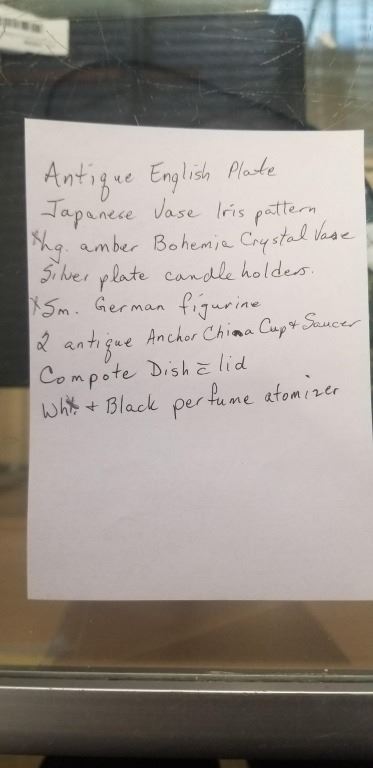 Antique English Plate
Japanese Vase Iris pattern
*hg. amber Bohemia Crystal Vase
Silver plate candle holders.
*Sm. German figurine
2 antique Anchor China Cup + Saucer
Compote Dish c̄ lid
Wht + Black perfume atomizer